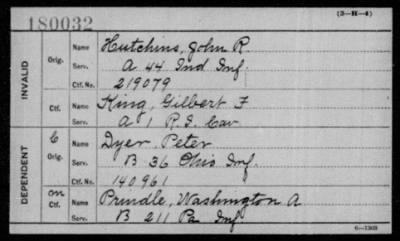 (3-H-4)
180032
INVALID
Orig. Name Hutchins, John R.
Serv. A 44 Ind Inf.
Ctf. No. 219079
Ctf. Name King, Gilbert F
Serv. A 1 R.I. Cav
DEPENDENT
C Orig. Name Dyer, Peter
Serv. B 36 Ohio Inf.
Ctf. No. 140961
on Ctf. Name Prindle, Washington A
Serv. B 211 Pa Inf
6-1369